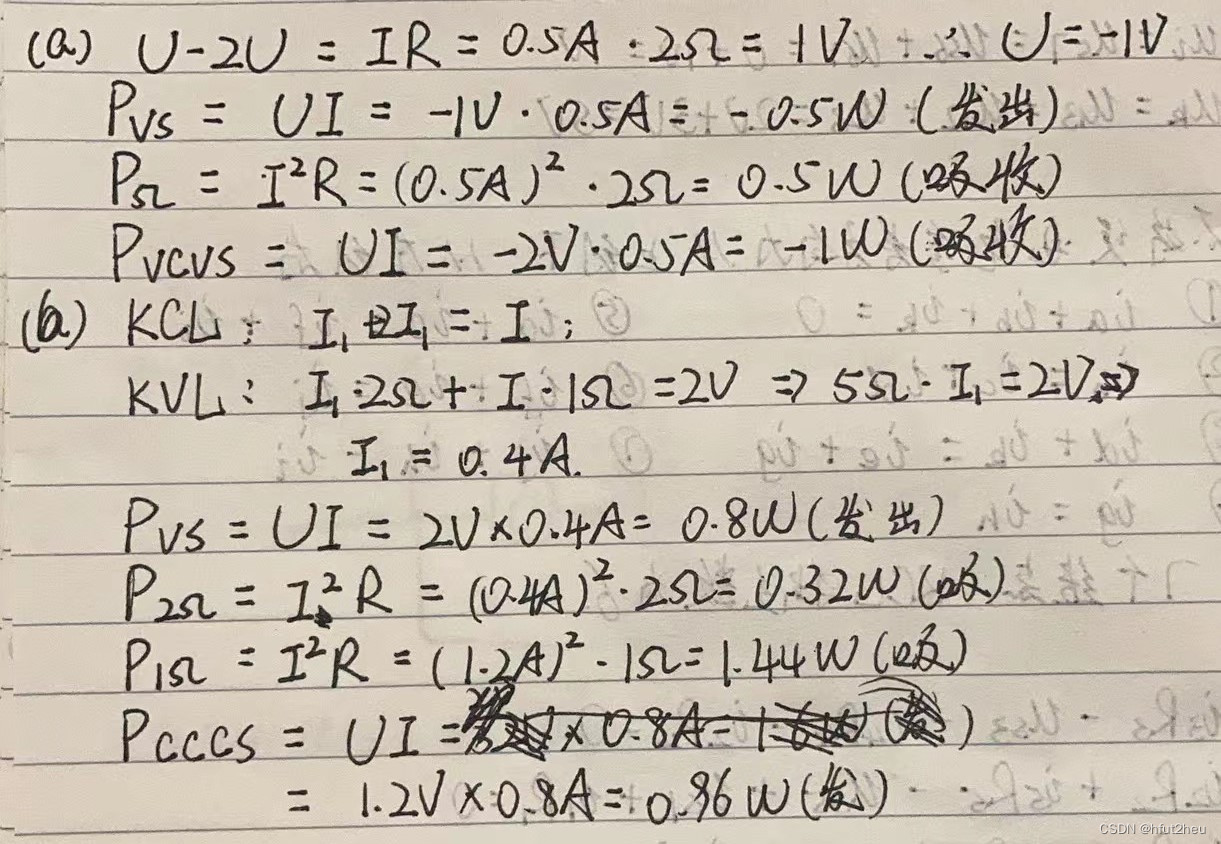 (a) U-2U = IR = 0.5A·2Ω = 1V ∴ U=-1V
Pvs = UI = -1V·0.5A = -0.5W (发出)
PΩ = I²R = (0.5A)²·2Ω = 0.5W (吸收)
Pvcvs = UI = -2V·0.5A = -1W (吸收)
(b) KCL: I₁+2I₁ = I;
KVL: I₁·2Ω + I·1Ω = 2V ⇒ 5Ω·I₁ = 2V ⇒
I₁ = 0.4A.
Pvs = UI = 2V×0.4A = 0.8W (发出)
P2Ω = I₁²R = (0.4A)²·2Ω = 0.32W (吸)
P1Ω = I²R = (1.2A)²·1Ω = 1.44W (吸)
Pcccs = UI = × 0.8A = )
= 1.2V×0.8A = 0.96W (发)
CSDN @hfut2heu